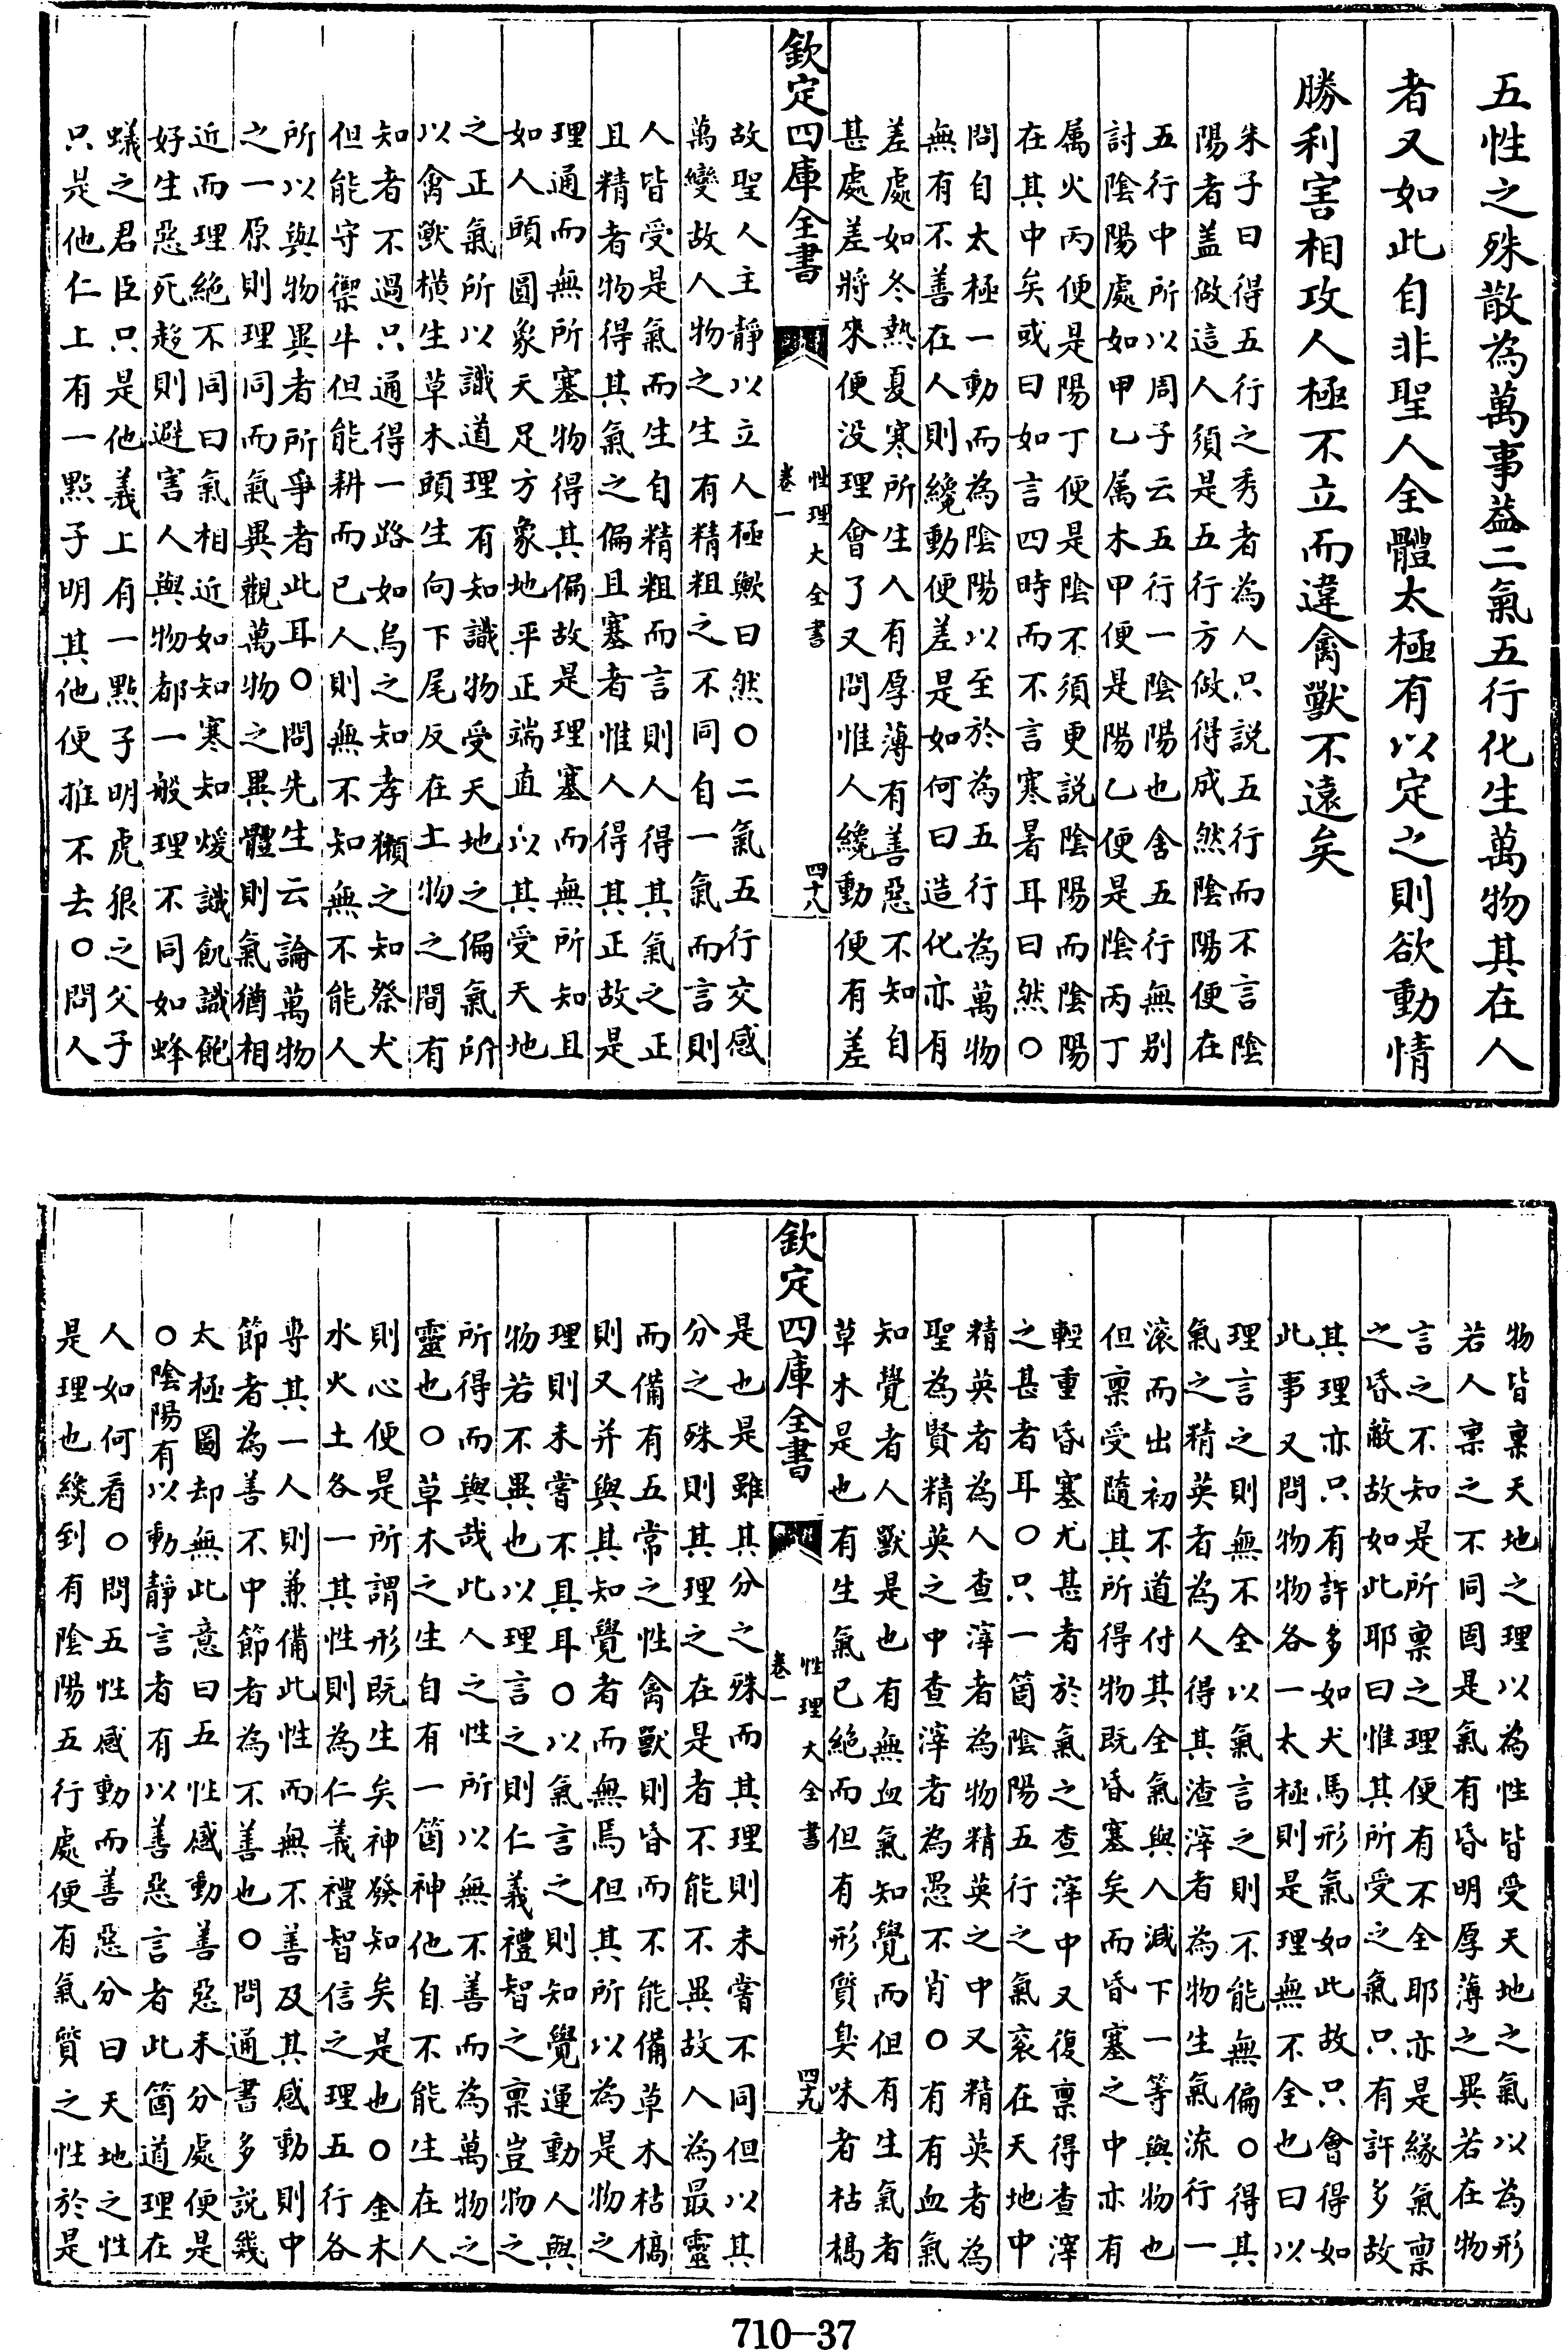 五性之殊散為萬事蓋二氣五行化生萬物其在人
者又如此自非聖人全體太極有以定之則欲動情
勝利害相攻人極不立而違禽獸不遠矣
朱子曰得五行之秀者為人只説五行而不言陰
陽者盖做這人須是五行方做得成然陰陽便在
五行中所以周子云五行一陰陽也舍五行無别
討陰陽處如甲乙属木甲便是陽乙便是陰丙丁
属火丙便是陽丁便是陰不須更説陰陽而陰陽
在其中矣或曰如言四時而不言寒暑耳曰然〇
問自太極一動而為陰陽以至於為五行為萬物
無有不善在人則纔動便差是如何曰造化亦有
差處如冬熱夏寒所生人有厚薄有善惡不知自
甚處差將來便没理會了又問惟人纔動便有差
欽定四庫全書
性理大全書
卷一
四十八
故聖人主靜以立人極歟曰然〇二氣五行交感
萬變故人物之生有精粗之不同自一氣而言則
人皆受是氣而生自精粗而言則人得其氣之正
且精者物得其氣之偏且塞者惟人得其正故是
理通而無所塞物得其偏故是理塞而無所知且
如人頭圓象天足方象地平正端直以其受天地
之正氣所以識道理有知識物受天地之偏氣所
以禽獸横生草木頭生向下尾反在土物之間有
知者不過只通得一路如烏之知孝獺之知祭犬
但能守禦牛但能耕而已人則無不知無不能人
所以與物異者所爭者此耳〇問先生云論萬物
之一原則理同而氣異觀萬物之異體則氣猶相
近而理絶不同曰氣相近如知寒知煖識飢識飽
好生惡死趨則避害人與物都一般理不同如蜂
蟻之君臣只是他義上有一點子明虎狼之父子
只是他仁上有一點子明其他便推不去〇問人
物皆禀天地之理以為性皆受天地之氣以為形
若人禀之不同固是氣有昏明厚薄之異若在物
言之不知是所禀之理便有不全耶亦是緣氣禀
之昏蔽故如此耶曰惟其所受之氣只有許多故
其理亦只有許多如犬馬形氣如此故只會得如
此事又問物物各一太極則是理無不全也曰以
理言之則無不全以氣言之則不能無偏〇得其
氣之精英者為人得其渣滓者為物生氣流行一
滚而出初不道付其全氣與人減下一等與物也
但禀受隨其所得物既昏塞矣而昏塞之中亦有
輕重昏塞尤甚者於氣之查滓中又復禀得查滓
之甚者耳〇只一箇陰陽五行之氣衮在天地中
精英者為人查滓者為物精英之中又精英者為
聖為賢精英之中查滓者為愚不肖〇有有血氣
知覺者人獸是也有無血氣知覺而但有生氣者
草木是也有生氣已絶而但有形質臭味者枯槁
欽定四庫全書
性理大全書
卷一
四十九
是也是雖其分之殊而其理則未嘗不同但以其
分之殊則其理之在是者不能不異故人為最靈
而備有五常之性禽獸則昏而不能備草木枯槁
則又并與其知覺者而無焉但其所以為是物之
理則未嘗不具耳〇以氣言之則知覺運動人與
物若不異也以理言之則仁義禮智之禀豈物之
所得而與哉此人之性所以無不善而為萬物之
靈也〇草木之生自有一箇神他自不能生在人
則心便是所謂形既生矣神發知矣是也〇金木
水火土各一其性則為仁義禮智信之理五行各
專其一人則兼備此性而無不善及其感動則中
節者為善不中節者為不善也〇問通書多説幾
太極圖却無此意曰五性感動善惡未分處便是
〇陰陽有以動靜言者有以善惡言者此箇道理在
人如何看〇問五性感動而善惡分曰天地之性
是理也纔到有陰陽五行處便有氣質之性於是
710-37